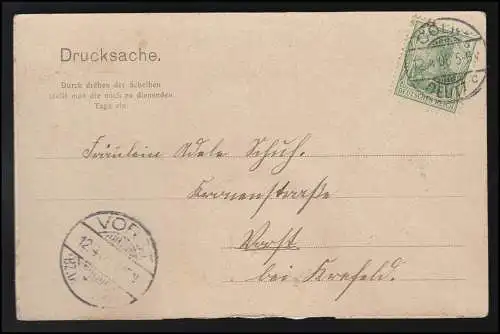 Drucksache.
Durch drehen der Scheiben
stellt man die noch zu dienenden
Tage ein.
CÖLN
DEUTZ
DEUTSCHES REICH
Fräulein Adele Schuh.
Kronenstraße
Vorst
bei Krefeld.
VORST
12.4